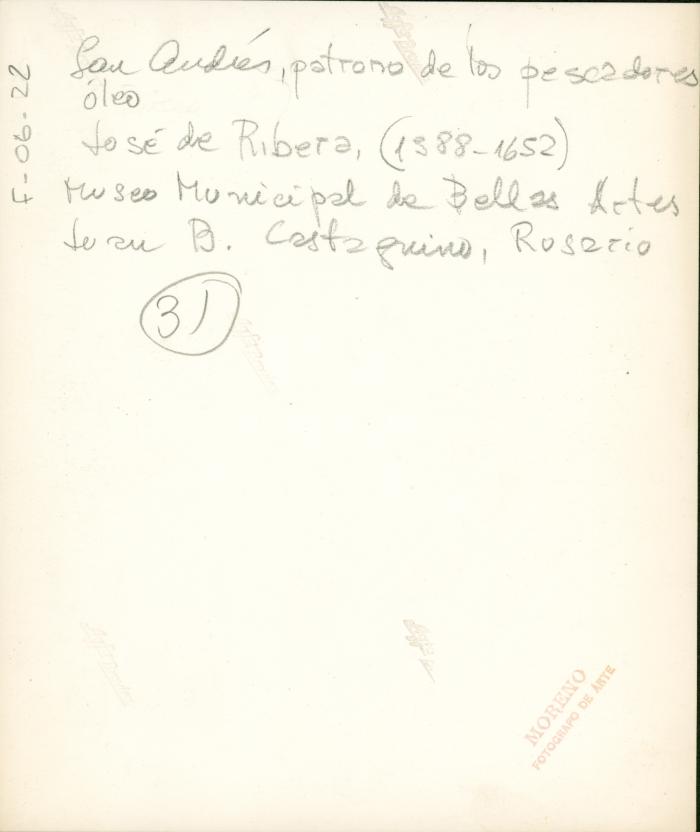 San Andrés, patrono de los pescadores
óleo
José de Ribera, (1588-1652)
Museo Municipal de Bellas Artes
Juan B. Castagnino, Rosario
31
F-06-22
MORENO
FOTOGRAFO DE ARTE